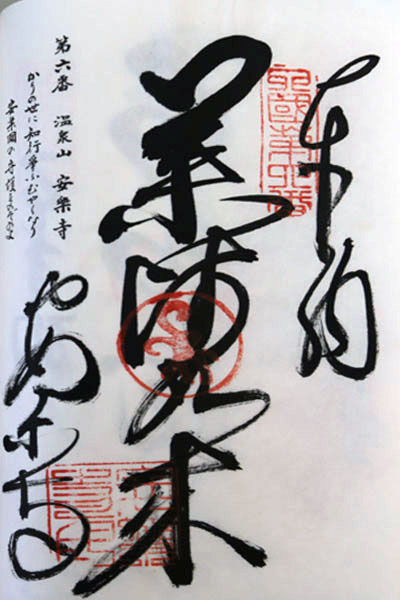 奉納
四國第六番
薬師如来
第六番　温泉山　安樂寺
かりの世に知行争ふむやくなり
安楽国の守護をのぞめよ